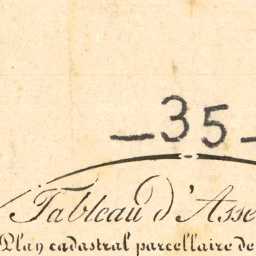 —35—
Tableau d'Asse
Plan cadastral parcellaire de